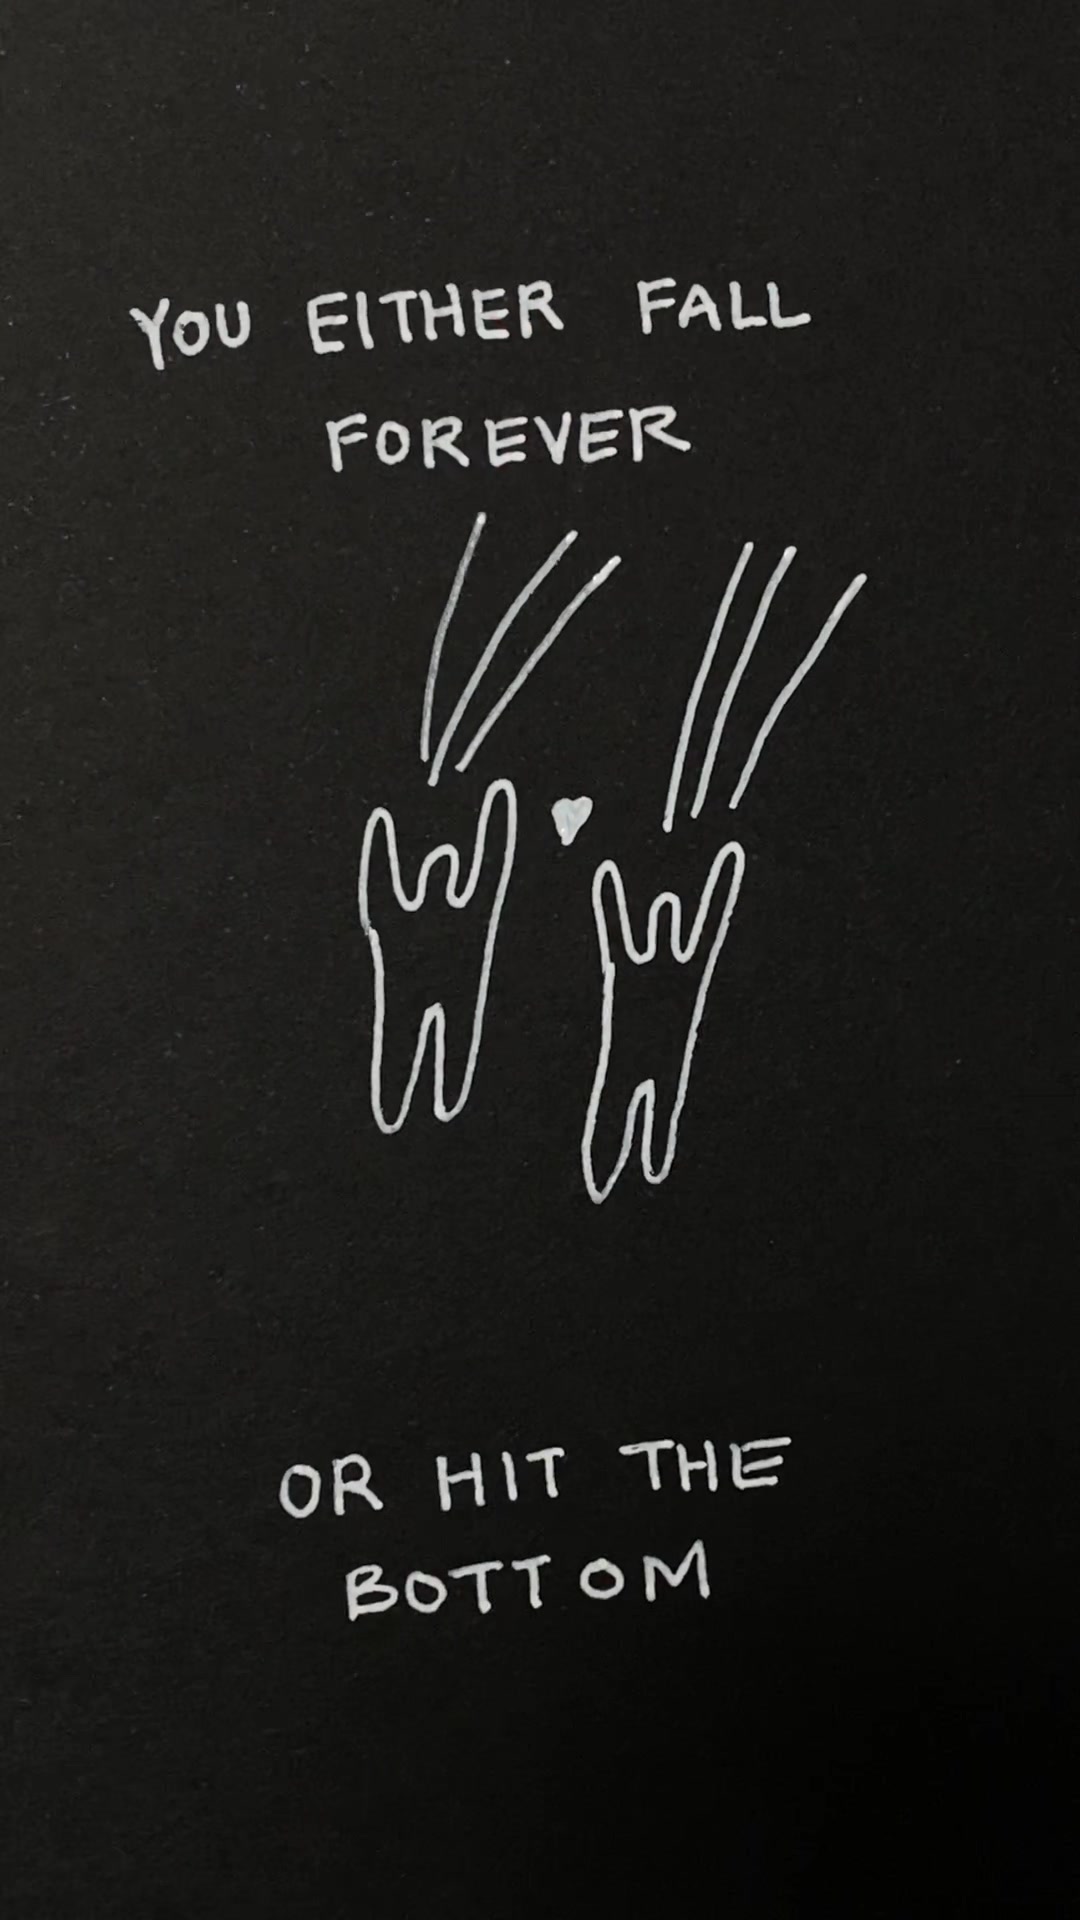 YOU EITHER FALL
FOREVER
OR HIT THE
BOTTOM